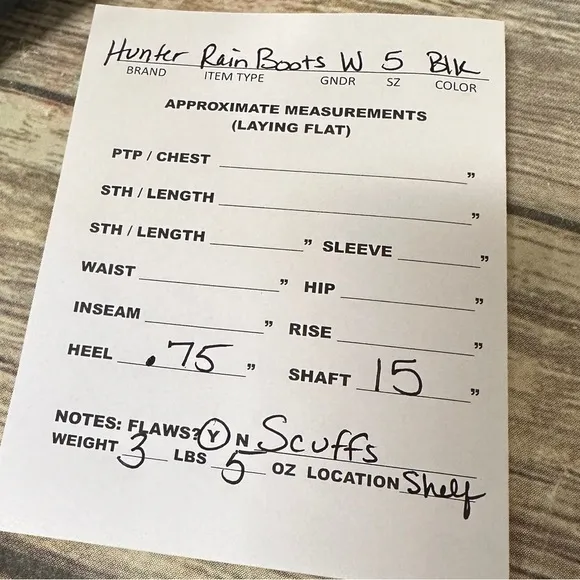 Hunter Rain Boots W 5 Blk
BRAND ITEM TYPE GNDR SZ COLOR
APPROXIMATE MEASUREMENTS
(LAYING FLAT)
PTP / CHEST ”
STH / LENGTH ”
STH / LENGTH ” SLEEVE ”
WAIST ” HIP ”
INSEAM ” RISE ”
HEEL .75 ” SHAFT 15 ”
NOTES: FLAWS? Y N Scuffs
WEIGHT 3 LBS 5 OZ LOCATION Shelf